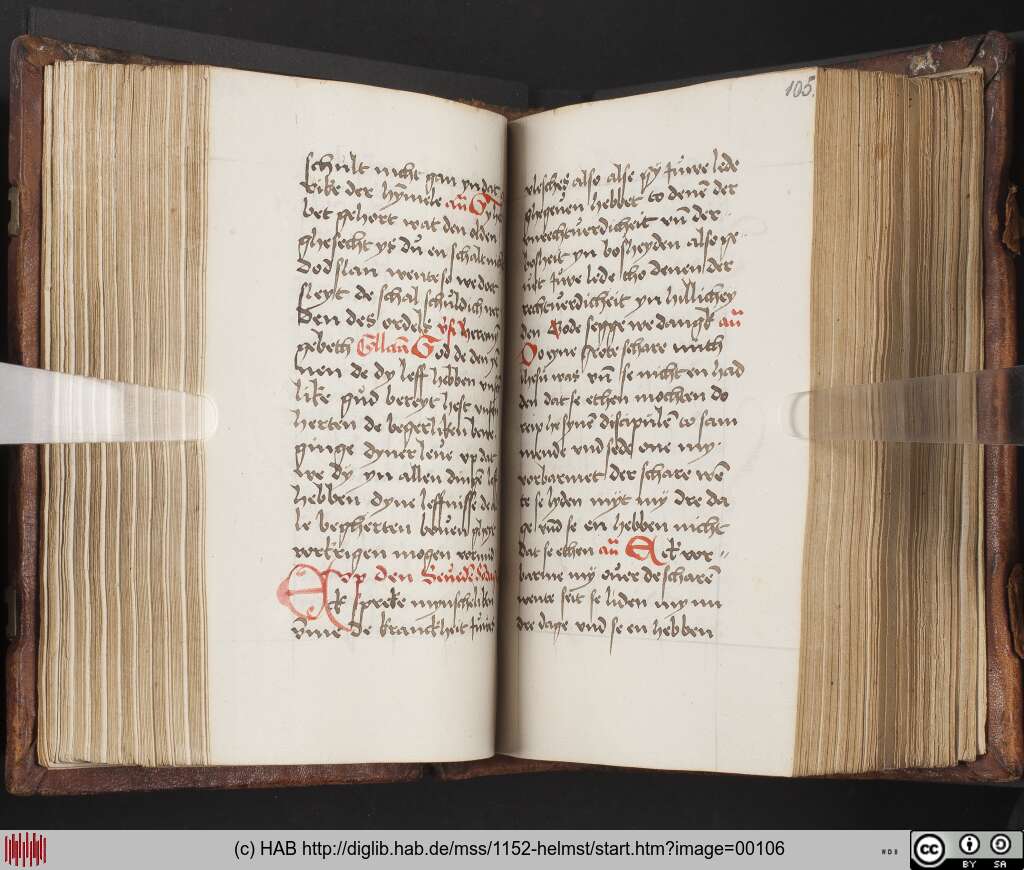 schult nicht gan yn dat
rike der hȳmele añ Gyhe
bet gehort wat den olden
ghesecht ys dū en schalt nicht
dod slan wente so we dot
sleyt de schal schuldich we
den des ordels
gebeth Collaā God de den yē
nen de dy leff hebben
like gud bereyt hest
herten de begerliken bewe
ginge dyner leue vp dat
we dy yn allen dingē leff
hebben dyne leffnisse de a
le begherten bouen
vorkrigen mogen
Vp den Seuedē
Ick spreke mynscheliken
vmme de kranckheit Juwes
vlesches also alse gy Juwe lede
ghegeuen hebbet to denen der
vnrechtuerdicheit vn̄ der
bosheit yn bosheyden also ge
uet Juwe lede tho denen der
rechtuerdicheit yn hillichey
den Gode segge we danck añ
Do yne grote schare mith
ihesu was vn̄ se nicht en had
den dat se ethen mochten do
reip he synē discipulē to sam
mende vnd sede one my
vorbarmet der schare wē
te se lyden myt my dre da
ge vnd se en hebben nicht
dat se ethen añ Ick vor
barme my ouer de scharē
wente seit se liden my nu
dre dage vnd se en hebben
105.
(c) HAB http://diglib.hab.de/mss/1152-helmst/start.htm?image=00106
WDB
cc
BY SA